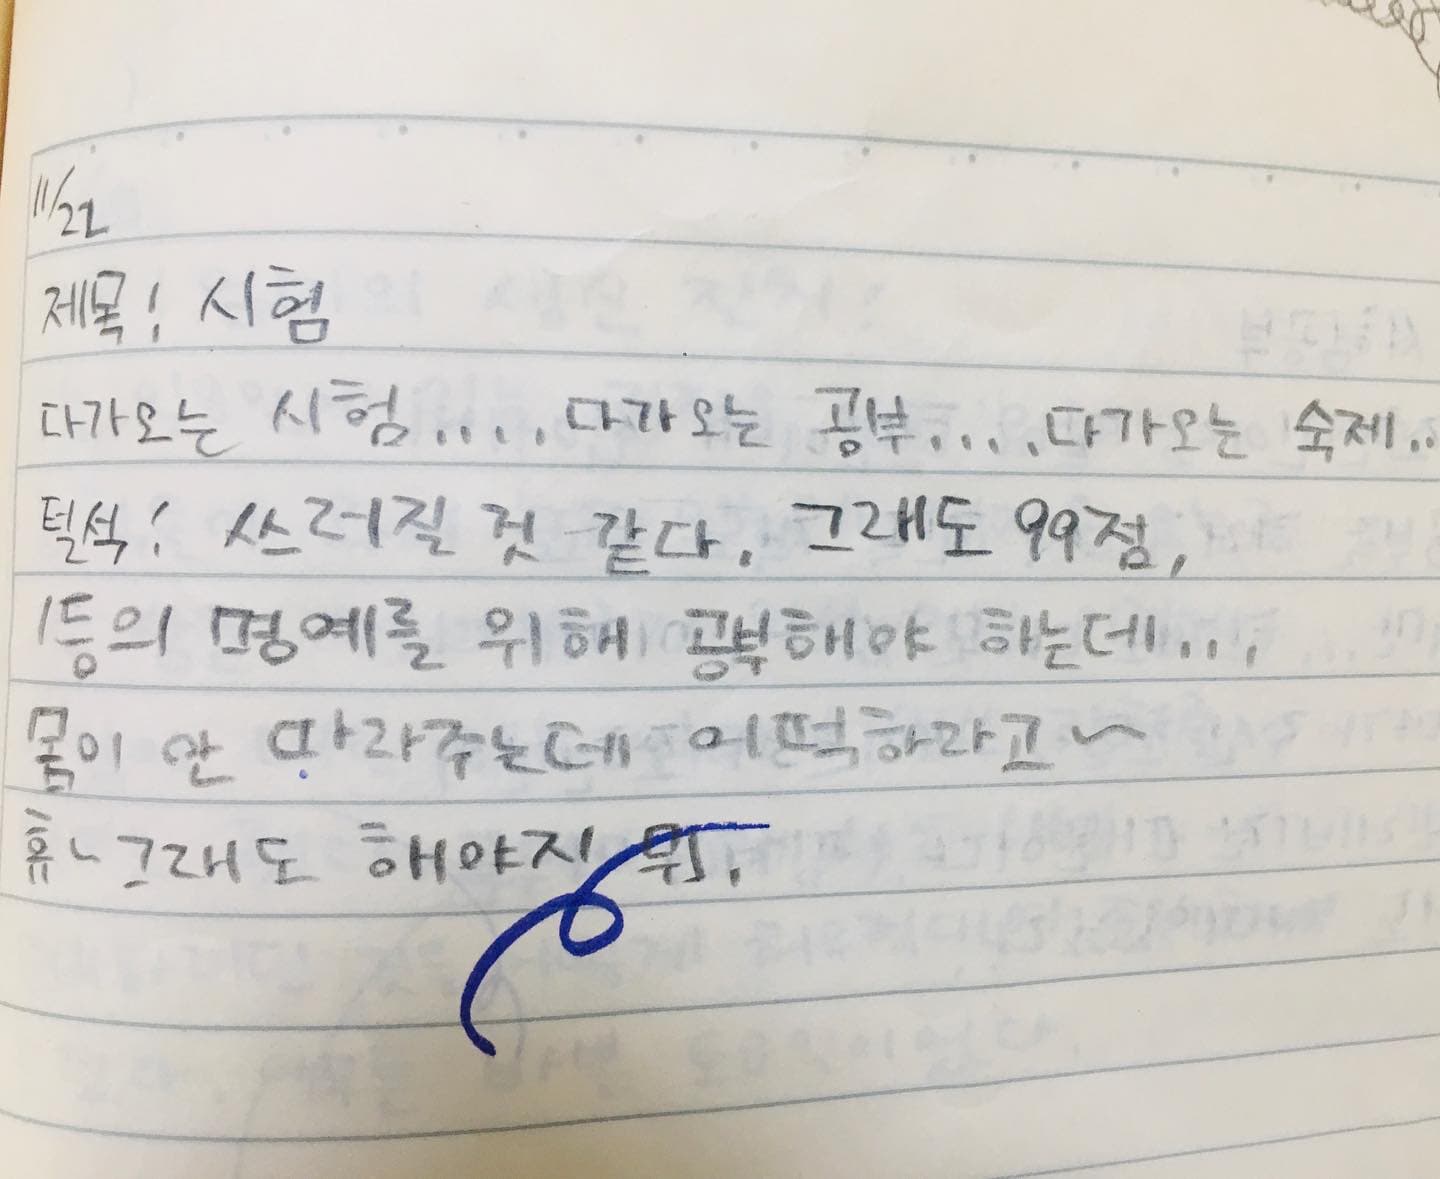 11/22
제목! 시험
다가오는 시험....다가오는 공부....다가오는 숙제..
털석! 쓰러질 것 같다. 그래도 99점,
1등의 명예를 위해 공부해야 하는데...
몸이 안 따라주는데 어떡하라고~
휴~그래도 해야지 뭐.